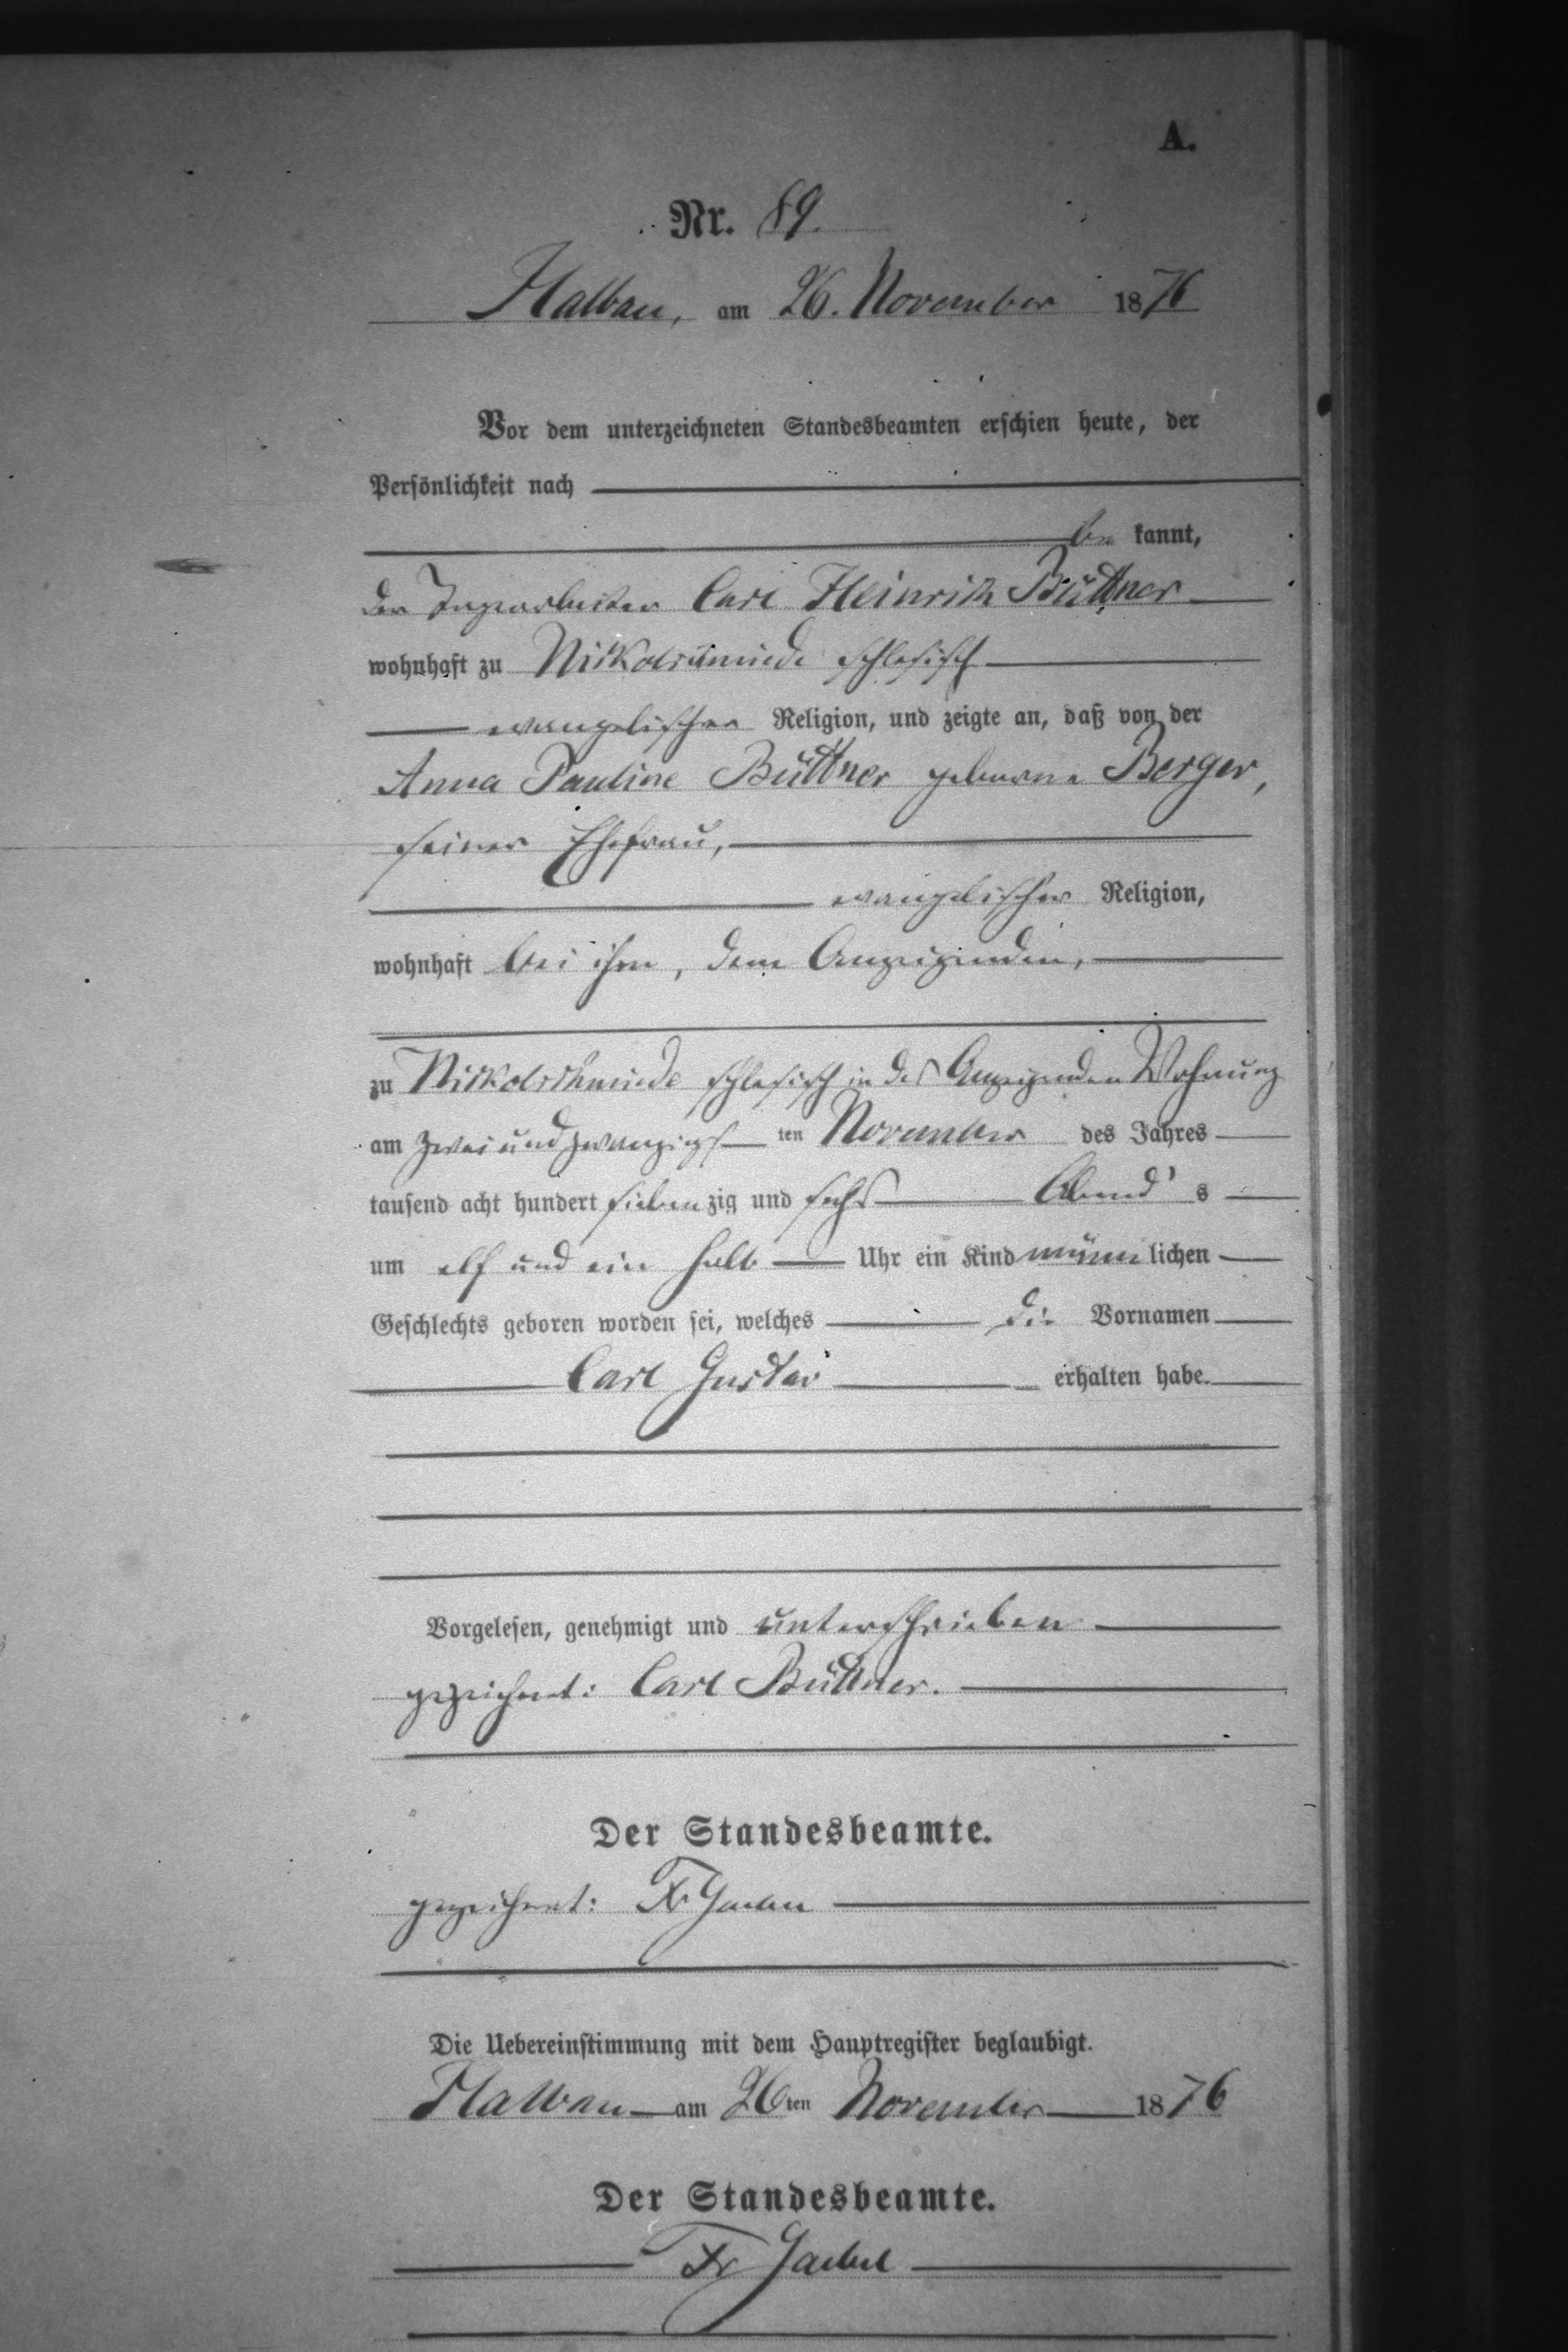 A.
Nr. 89.
Halbau, am 26. November 1876
Vor dem unterzeichneten Standesbeamten erschien heute, der
Persönlichkeit nach
be kannt,
der Tagearbeiter Carl Heinrich Büttner
wohnhaft zu Nikolschmiede schlesisch
evangelischer Religion, und zeigte an, daß von der
Anna Pauline Büttner geborene Berger,
seiner Ehefrau,
evangelischer Religion,
wohnhaft bei ihm, dem Anzeigenden,
zu Nikolschmiede schlesisch in des Anzeigenden Wohnung
am zweiundzwanzigsten November des Jahres
tausend acht hundert siebenzig und sechs Abend's
um elf und ein halb Uhr ein Kind männlichen
Geschlechts geboren worden sei, welches die Vornamen
Carl Gustav erhalten habe.
Vorgelesen, genehmigt und unterschrieben
gezeichnet: Carl Büttner.
Der Standesbeamte.
gezeichnet: Fr
Die Uebereinstimmung mit dem Hauptregister beglaubigt.
Halbau am 26ten November 1876
Der Standesbeamte.
Fr